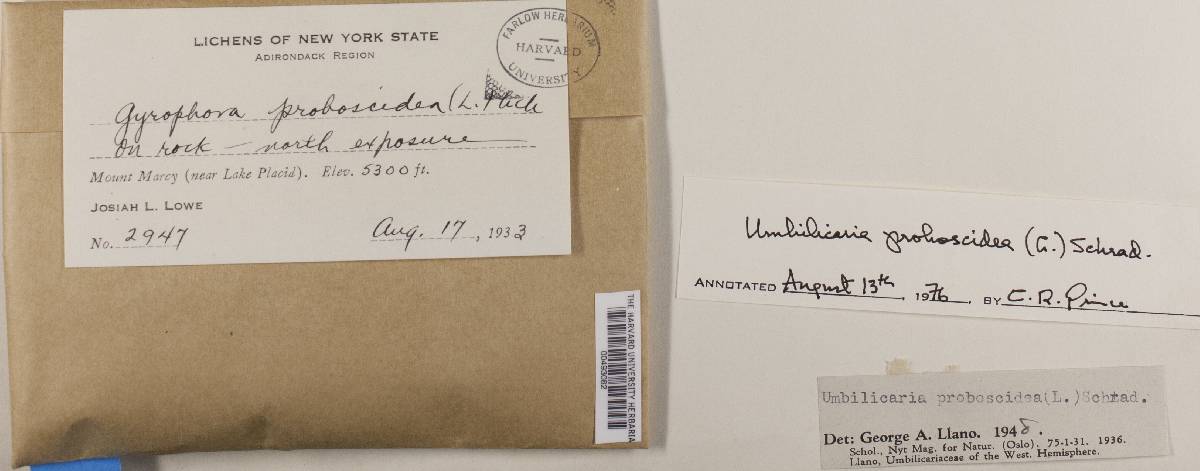 LICHENS OF NEW YORK STATE
ADIRONDACK REGION
FARLOW HERBARIUM
HARVARD
UNIVERSITY
Gyrophora proboscidea (L.) Ach
On rock — north exposure
Mount Marcy (near Lake Placid). Elev. 5300 ft.
JOSIAH L. LOWE
No. 2947 Aug. 17, 1933
THE HARVARD UNIVERSITY HERBARIA
00493082
Umbilicaria proboscidea (L.) Schrad.
ANNOTATED August 13th, 1976, BY C. R. Prince
Umbilicaria proboscidea(L.)Schrad.
Det: George A. Llano. 1948.
Schol., Nyt Mag. for Natur. (Oslo). 75-1-31. 1936.
Llano, Umbilicariaceae of the West. Hemisphere.